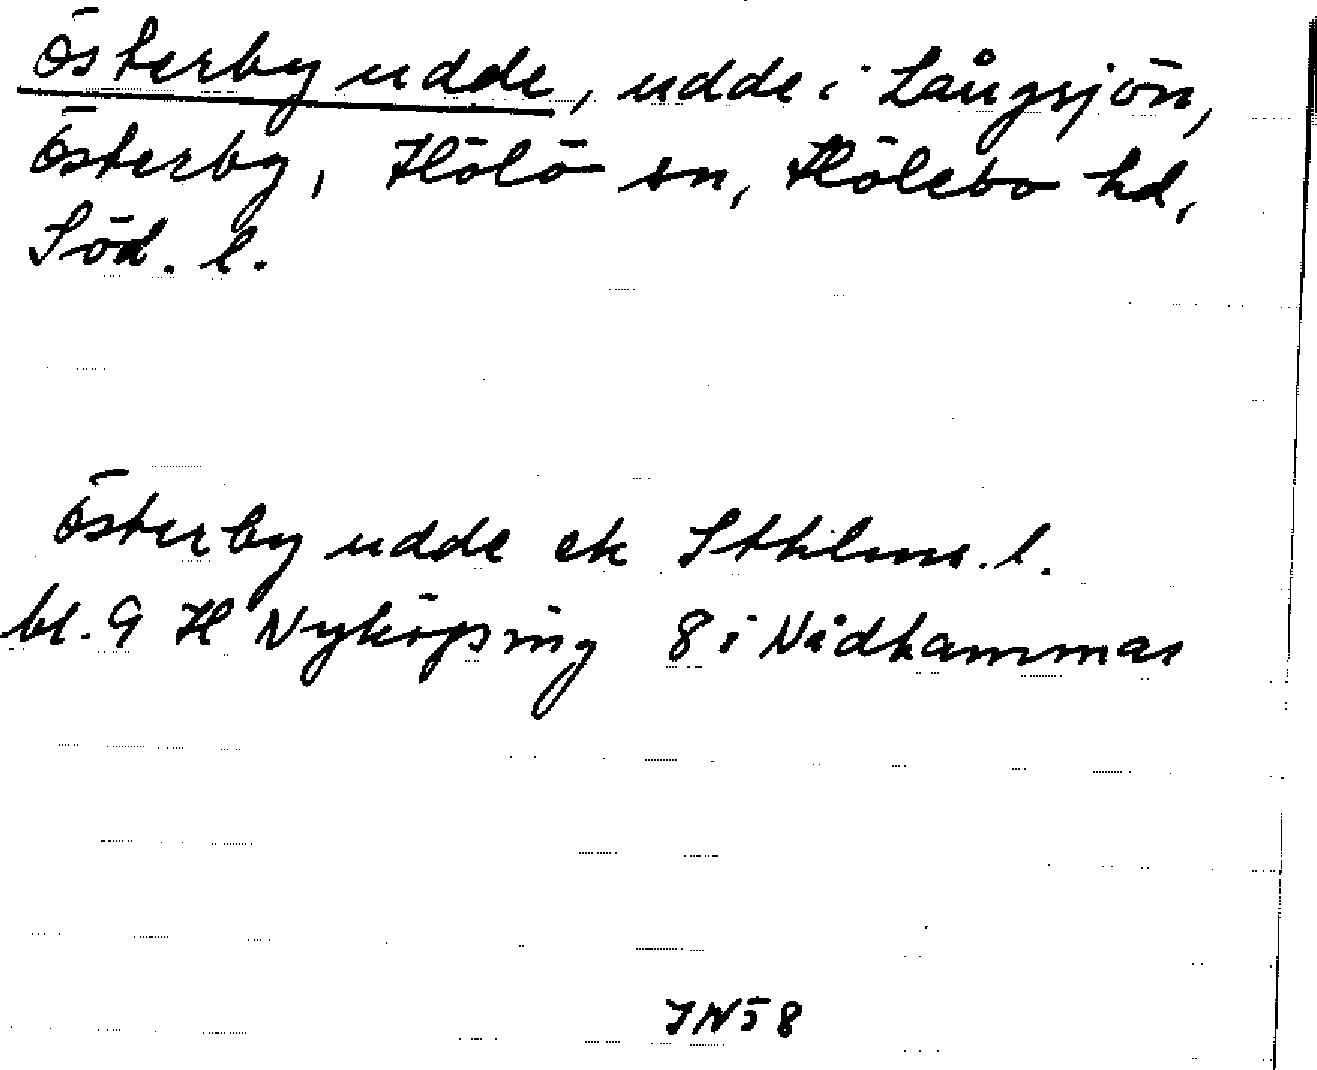 Österby udde, udde i Långsjön,
Österby, Hölö sn, Hölebo hd,
Söd. l.
Österby udde ek Sthlms. l.
bl. 9 H Nyköping 8 i Nådhammar
JN58